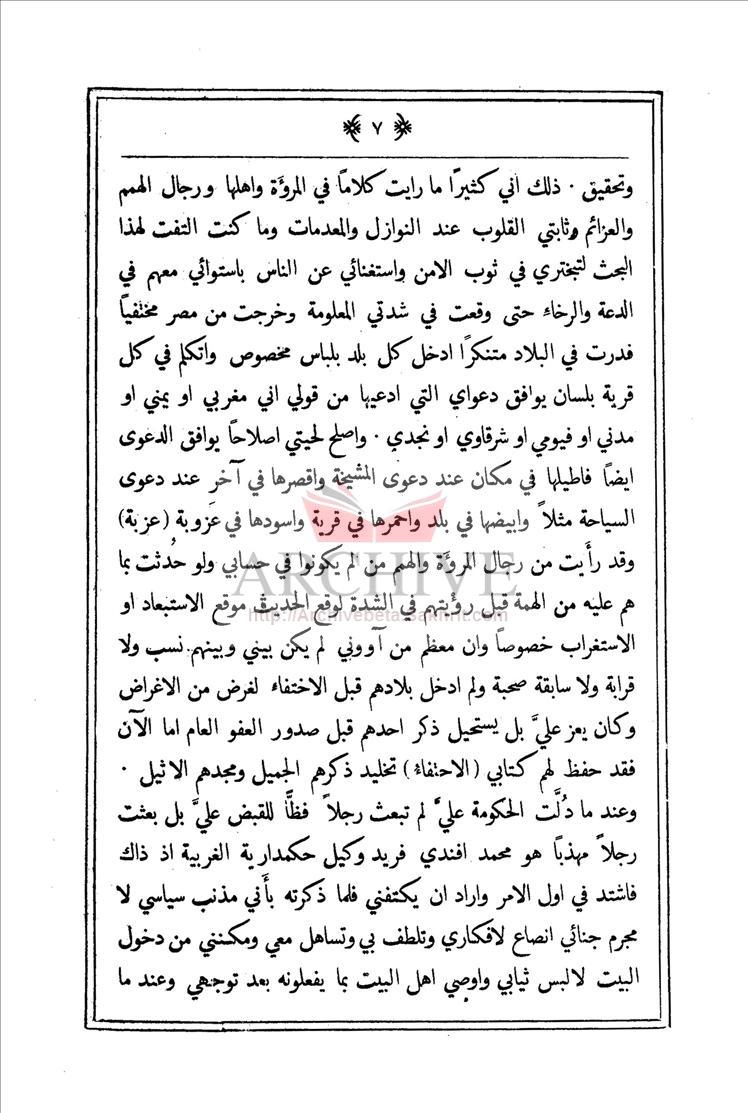 ﴿ ٧ ﴾
وتحقيق . ذلك اني كثيرًا ما رايت كلامًا في المروَّة واهلها ورجال الهمم
والعزائم وثابتي القلوب عند النوازل والمعدمات وما كنت التفت لهذا
البحث لتبختري في ثوب الامن واستغنائي عن الناس باستوائي معهم في
الدعة والرخاء حتى وقعت في شدتي المعلومة وخرجت من مصر مختفيًا
فدرت في البلاد متنكرًا ادخل كل بلد بلباس مخصوص واتكلم في كل
قرية بلسان يوافق دعواي التي ادعيها من قولي اني مغربي او يمني او
مدني او فيومي او شرقاوي او نجدي . واصلح لحيتي اصلاحًا يوافق الدعوى
ايضًا فاطيلها في مكان عند دعوى المشيخة واقصرها في آخر عند دعوى
السياحة مثلاً وابيضها في بلد واحمرها في قرية واسودها في عَزوبة (عزبة)
وقد رأَيت من رجال المروَّة والهمم من لم يكونوا في حسابي ولو حُدثت بما
هم عليه من الهمة قبل روْيتهم في الشدة لوقع الحديث موقع الاستبعاد او
الاستغراب خصوصًا وان معظم من آووني لم يكن بيني وبينهم نسب ولا
قرابة ولا سابقة صحبة ولم ادخل بلادهم قبل الاختفاء لغرض من الاغراض
وكان يعز عليَّ بل يستحيل ذكر احدهم قبل صدور العفو العام اما الآن
فقد حفظ لهم كتابي (الاحتفاء) تخليد ذكرهم الجميل ومجدهم الاثيل .
وعند ما دُلَّت الحكومة عليَّ لم تبعث رجلاً فظًّا للقبض عليَّ بل بعثت
رجلاً مهذبًا هو محمد افندي فريد وكيل حكمدارية الغربية اذ ذاك
فاشتد في اول الامر واراد ان يكتفني فلما ذكرته بأَني مذنب سياسي لا
مجرم جنائي انصاع لافكاري وتلطف بي وتساهل معي ومكنني من دخول
البيت لالبس ثيابي واوصي اهل البيت بما يفعلونه بعد توجهي وعند ما
ARCHIVE
http://Archivebeta.Sakhrit.com